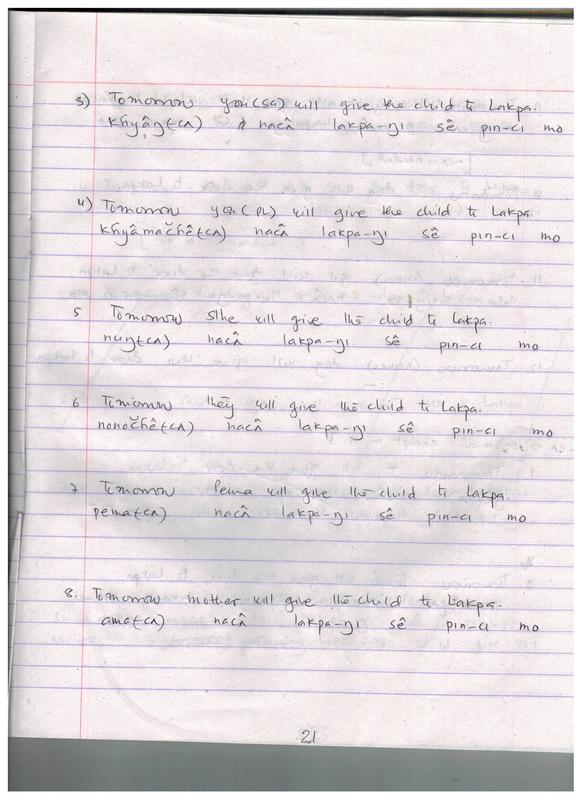 3) Tomorrow you(SG) will give the child to Lakpa.
khyâŋ(-cʌ) nacʌ̂ lakpa-ŋı sê pın-cı mo
4) Tomorrow you(PL) will give the child to Lakpa
khyâmačhê(-cʌ) nacʌ̂ lakpa-ŋı sê pın-cı mo
5 Tomorrow S/he will give the child to Lakpa.
nuŋ(-cʌ) nacʌ̂ lakpa-ŋı sê pın-cı mo
6 Tomorrow they will give the child to Lakpa.
nonočhê(-cʌ) nacʌ̂ lakpa-ŋı sê pın-cı mo
7 Tomorrow Pema will give the child to Lakpa.
pema(-cʌ) nacʌ̂ lakpa-ŋı sê pın-cı mo
8. Tomorrow mother will give the child to Lakpa.
ama(-cʌ) nacʌ̂ lakpa-ŋı sê pın-cı mo
21